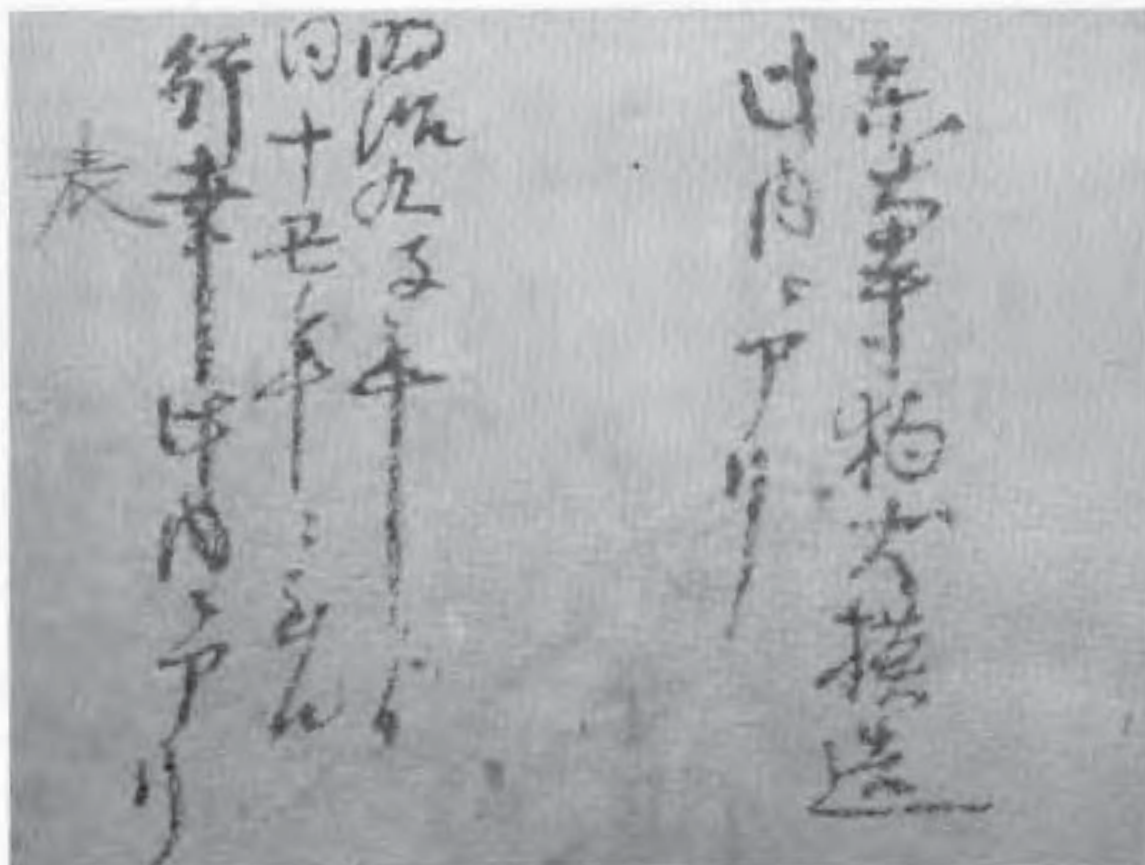 東大寺物模造
此内ニアリ
明治九子年ヨリ
同十丑年ニ至ル
幸此内ニアリ
表